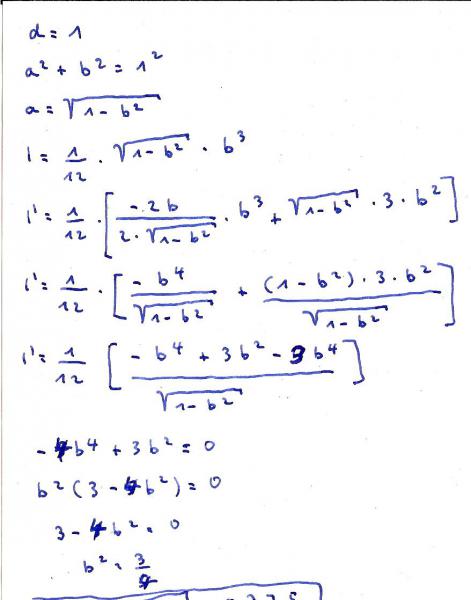 d = 1
a² + b² = 1²
a = √(1-b²)
I = 1/12 · √(1-b²) · b³
I' = 1/12 · [ -2b / (2·√(1-b²)) · b³ + √(1-b²) · 3 · b² ]
I' = 1/12 · [ -b⁴ / √(1-b²) + (1-b²)·3·b² / √(1-b²) ]
I' = 1/12 [ (-b⁴ + 3b² - 3b⁴) / √(1-b²) ]
-4b⁴ + 3b² = 0
b² (3 - 4b²) = 0
3 - 4b² = 0
b² = 3/4